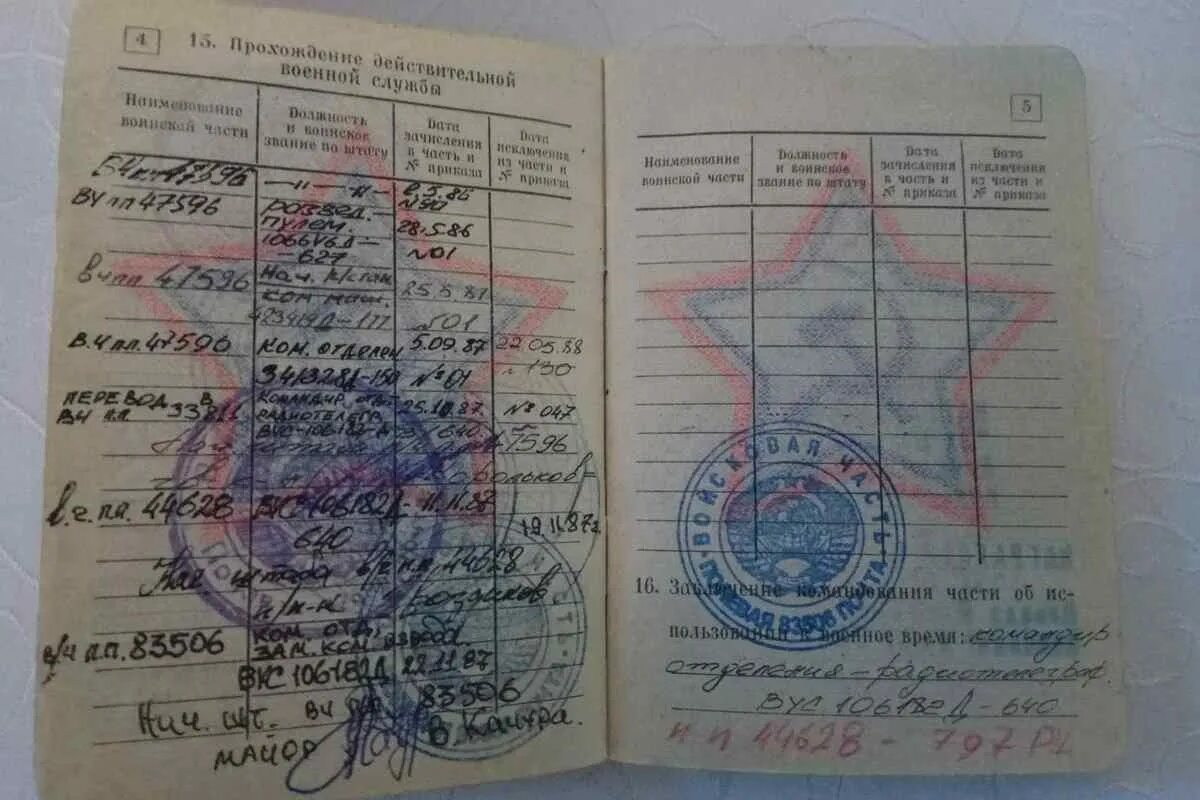 4
15. Прохождение действительной
военной службы
Наименование
воинской части
Должность
и воинское
звание по штату
Дата
зачисления
в часть и
№ приказа
Дата
исключения
из части и
№ приказа
47596
2.5.86
№90
ВЧ пп 47596
РОЗВЕД.-
ПУЛЕМ.
106646Д-
-627
28.5.86
№01
в/ч пп 47596
Нач.
ком
423414Д-177
№01
В.Ч пп. 47596
КОМ. ОТДЕЛЕН
5.09.87
22.05.88
341328Д-150
№ 01
№ 130
ПЕРЕВОД. В
ВЧ П.П.
КОМАНДИР. ОТД.-
РАДИОТЕЛЕГР.
ВУС-106182-Д-
640
25.10.87.
№ 047
в.ч. п.п. 44628
ВУС 106182Д-
640
11.11.87
19.11.87г.
Нач штаба в/ч п.п. 44628
п/п-к
в/ч пп. 83506
КОМ. ОТД.
ЗАМ. КОМ. ВЗВОДА.
ВУС 106182Д
22.11.87
Нач. шт. ВЧ пп. 83506
МАЙОР
5
Наименование
воинской части
Должность
и воинское
звание по штату
Дата
зачисления
в часть и
№ приказа
Дата
исключения
из части и
№ приказа
ВОЙСКОВАЯ ЧАСТЬ
ПОЛЕВАЯ ПОЧТА 83506
16. Заключение командования части об ис-
пользовании в военное время: командир
отделения - радиотелеграф.
ВУС 106182Д-640
п п 44628 - 797